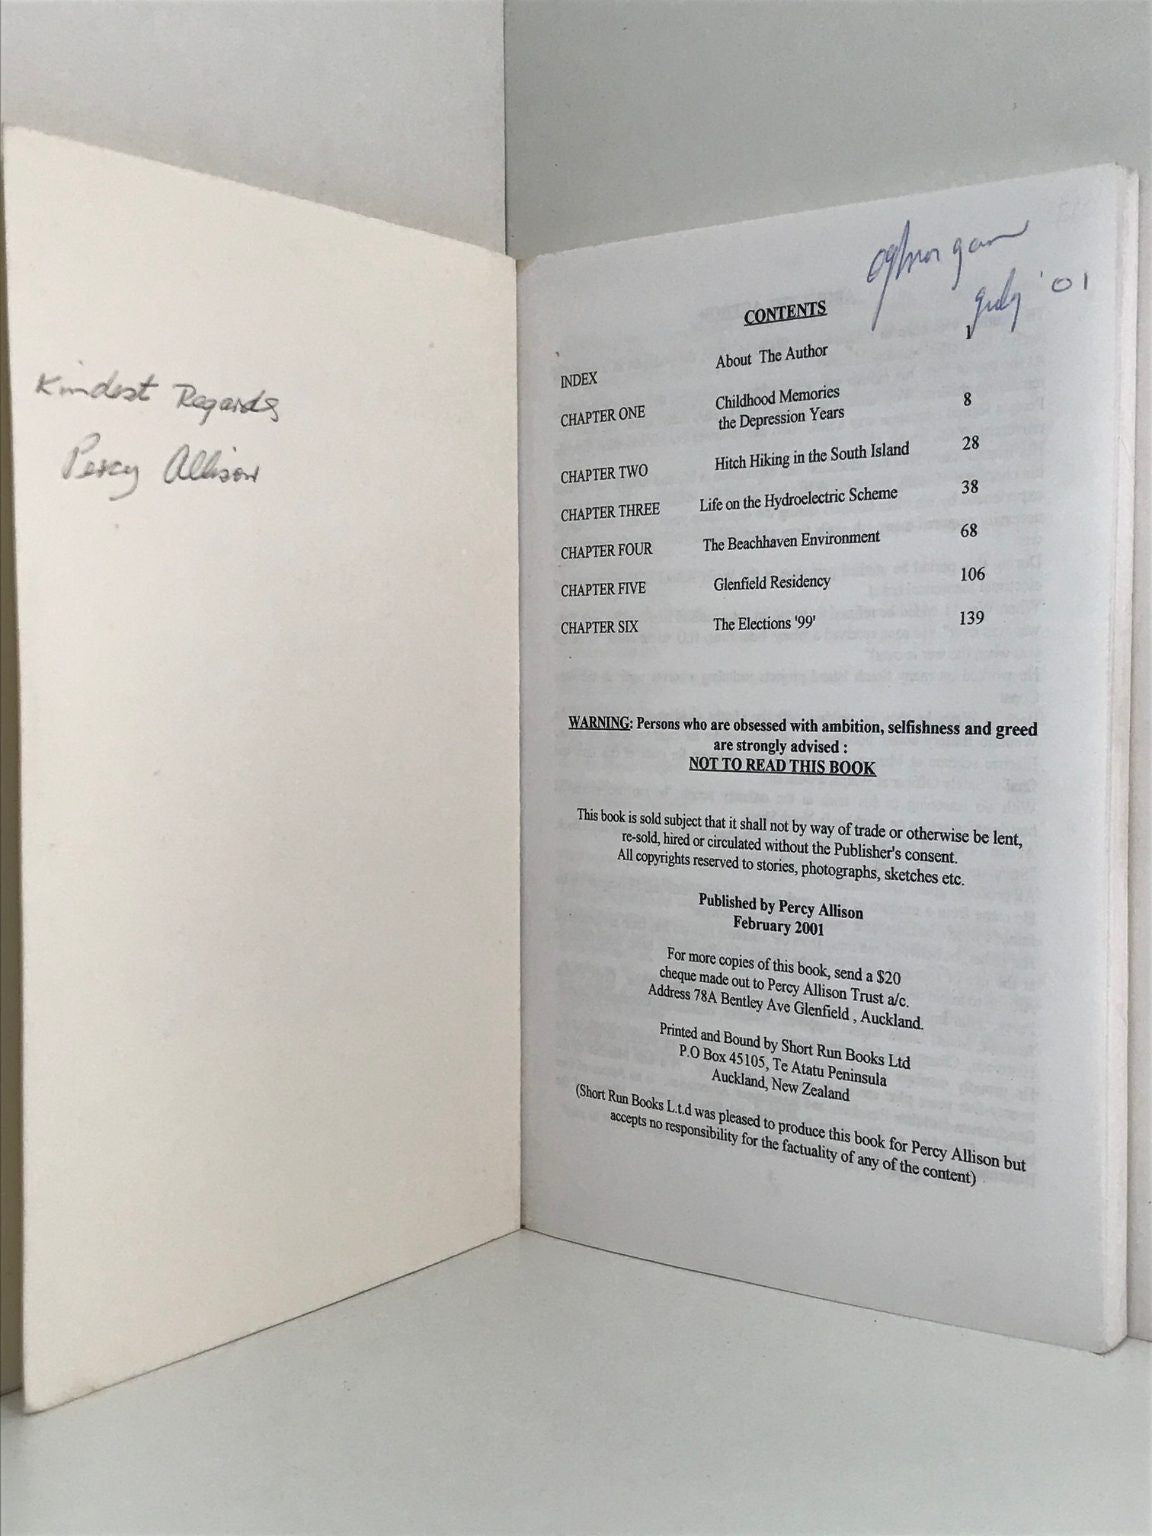 Kindest Regards
Percy Allison
July '01
CONTENTS
INDEX About The Author 1
CHAPTER ONE Childhood Memories 8
the Depression Years
CHAPTER TWO Hitch Hiking in the South Island 28
CHAPTER THREE Life on the Hydroelectric Scheme 38
CHAPTER FOUR The Beachhaven Environment 68
CHAPTER FIVE Glenfield Residency 106
CHAPTER SIX The Elections '99' 139
WARNING: Persons who are obsessed with ambition, selfishness and greed
are strongly advised :
NOT TO READ THIS BOOK
This book is sold subject that it shall not by way of trade or otherwise be lent,
re-sold, hired or circulated without the Publisher's consent.
All copyrights reserved to stories, photographs, sketches etc.
Published by Percy Allison
February 2001
For more copies of this book, send a $20
cheque made out to Percy Allison Trust a/c.
Address 78A Bentley Ave Glenfield , Auckland.
Printed and Bound by Short Run Books Ltd
P.O Box 45105, Te Atatu Peninsula
Auckland, New Zealand
(Short Run Books L.t.d was pleased to produce this book for Percy Allison but
accepts no responsibility for the factuality of any of the content)